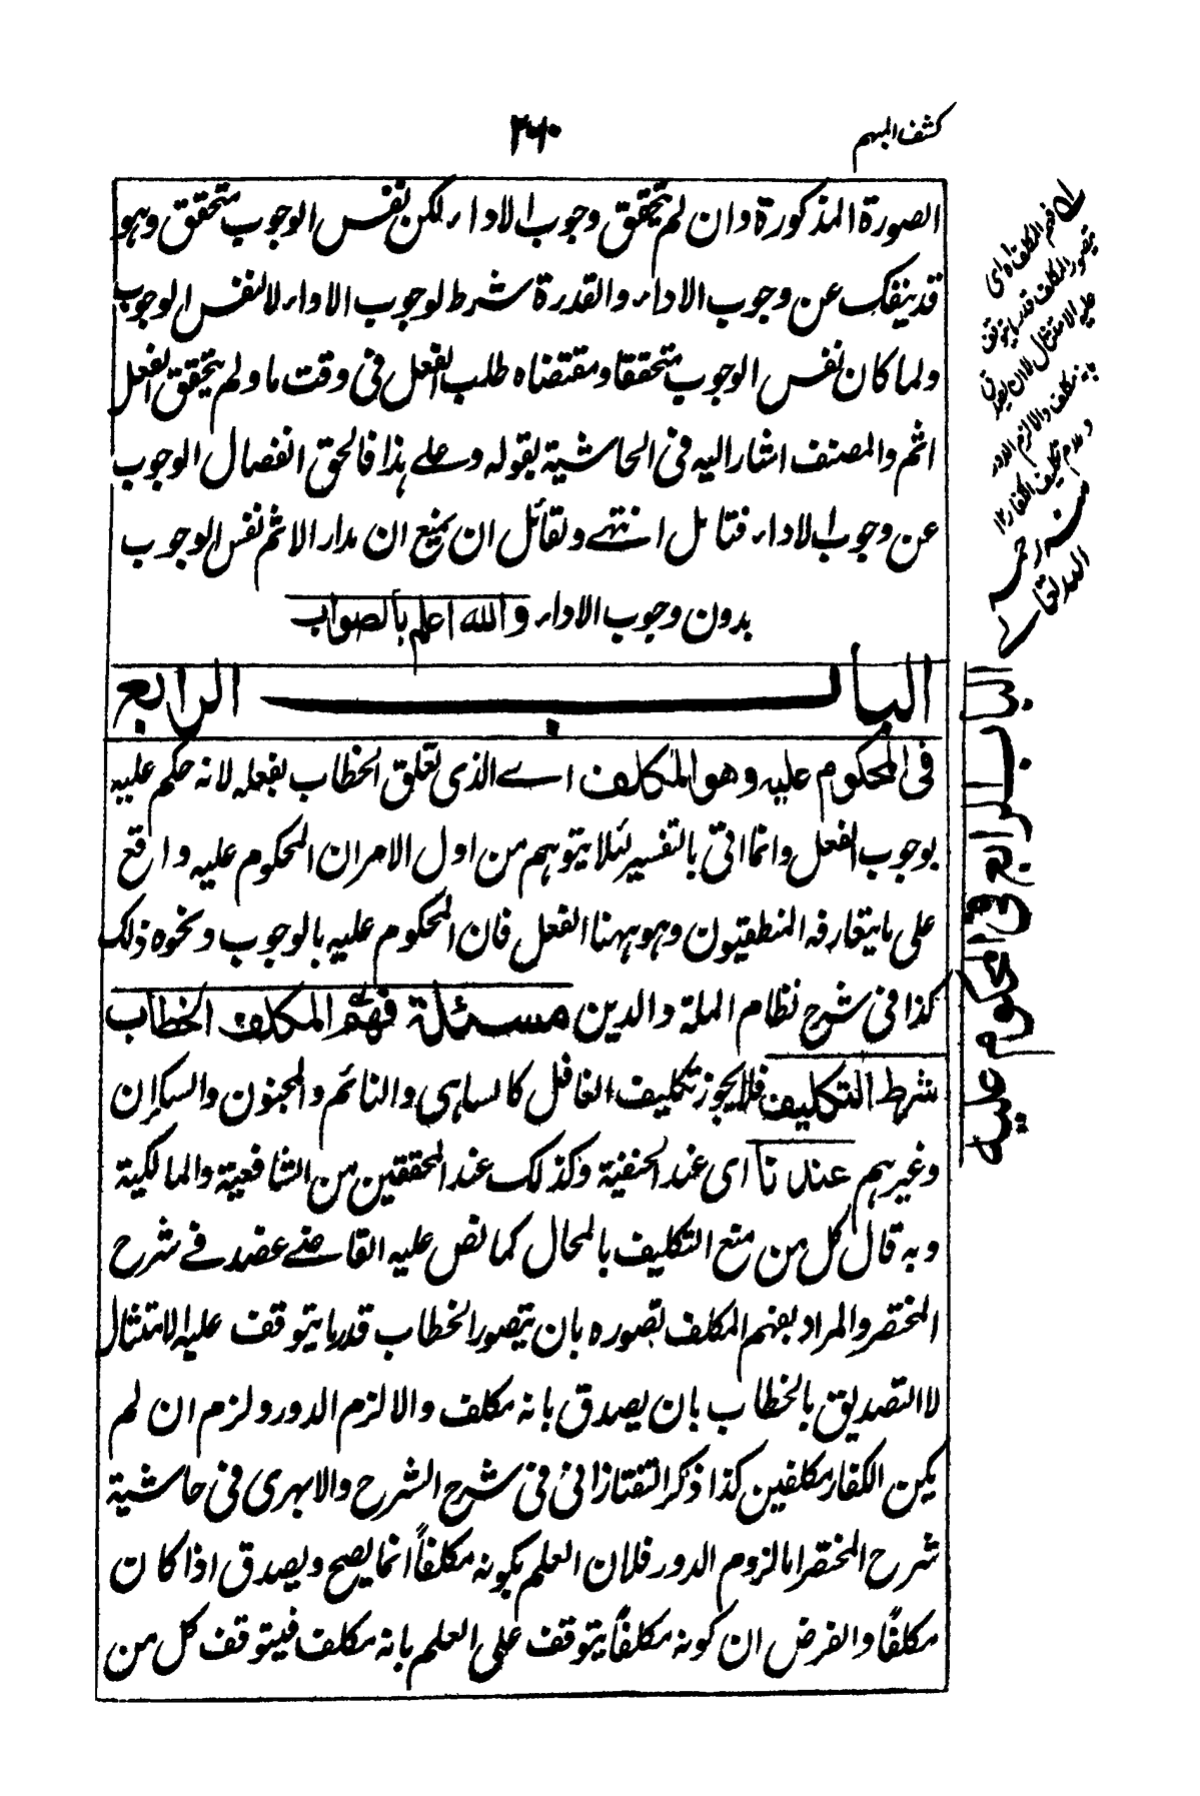 كشف المبهم
٢٠١٠
الصورة المذكورة وان لم يتحقق وجوب الاداء لكن نفس الوجوب متحقق وهو
قد ينفك عن وجوب الاداء والقدرة شرط لوجوب الاداء لا لنفس الوجوب
ولما كان نفس الوجوب متحققا ومقتضاه طلب الفعل فى وقت ما ولم يتحقق الفعل
اثم والمصنف اشار اليه فى الحاشية بقوله وعلے هذا فالحق انفصال الوجوب
عن وجوب الاداء فتامل انتهے ولقائل ان يمنع ان مدار الاثم نفس الوجوب
بدون وجوب الاداء والله اعلم بالصواب
الباب الرابع
فى المحكوم عليه وهو المكلف اے الذى تعلق الخطاب بفعله لانه حكم عليه
بوجوب الفعل وانما اتى بالتفسير لئلا يتوهم من اول الامر ان المحكوم عليه واقع
على ما يتعارفه المنطقيون وهو ههنا الفعل فان المحكوم عليه بالوجوب ونحوه ذلك
كذا فى شرح نظام الملة والدين مسئلة فهم المكلف الخطاب
شرط التكليف فلا يجوز تكليف الغافل كالساهى والنائم والمجنون والسكران
وغيرهم عندنا اى عند الحنفية وكذلك عند المحققين من الشافعية والمالكية
وبه قال كل من منع التكليف بالمحال كما نص عليه القاضے عضد فے شرح
المختصر والمراد بفهم المكلف تصوره بان يتصور الخطاب قدر ما يتوقف عليه الامتثال
لا التصديق بالخطاب بان يصدق بانه مكلف والا لزم الدور ولزم ان لم
يكن الكفار مكلفين كذا ذكر التفتازانى فى شرح الشرح والابهرى فى حاشية
شرح المختصر اما لزوم الدور فلان العلم بكونه مكلفاً انما يصح ويصدق اذا كان
مكلفًا والفرض ان كونه مكلفًا يتوقف على العلم بانه مكلف فيتوقف كل من
فهم المكلف اه اى
تصور المكلف قدر ما يتوقف
عليه الامتثال لا ان يصدق
بانه مكلف والا لزم الدور
وعدم تكليف الكفار ١٢
منه رحمه
الله تعالے
الباب الرابع فى المحكوم عليه